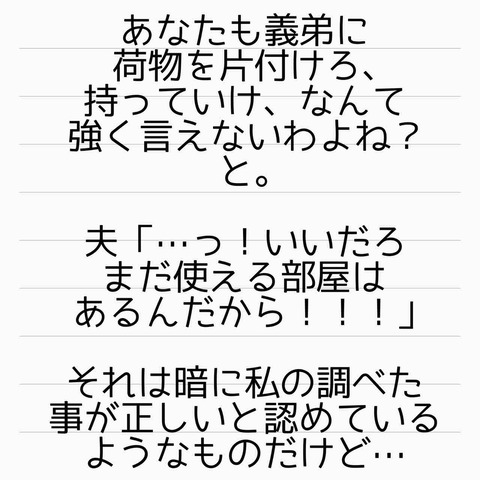 あなたも義弟に
荷物を片付けろ、
持っていけ、なんて
強く言えないわよね？
と。
夫「…っ！いいだろ
まだ使える部屋は
あるんだから！！！」
それは暗に私の調べた
事が正しいと認めている
ようなものだけど…